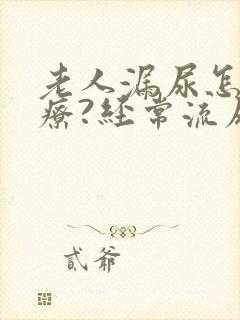 老人漏尿怎
療?经常流尿
贰爺